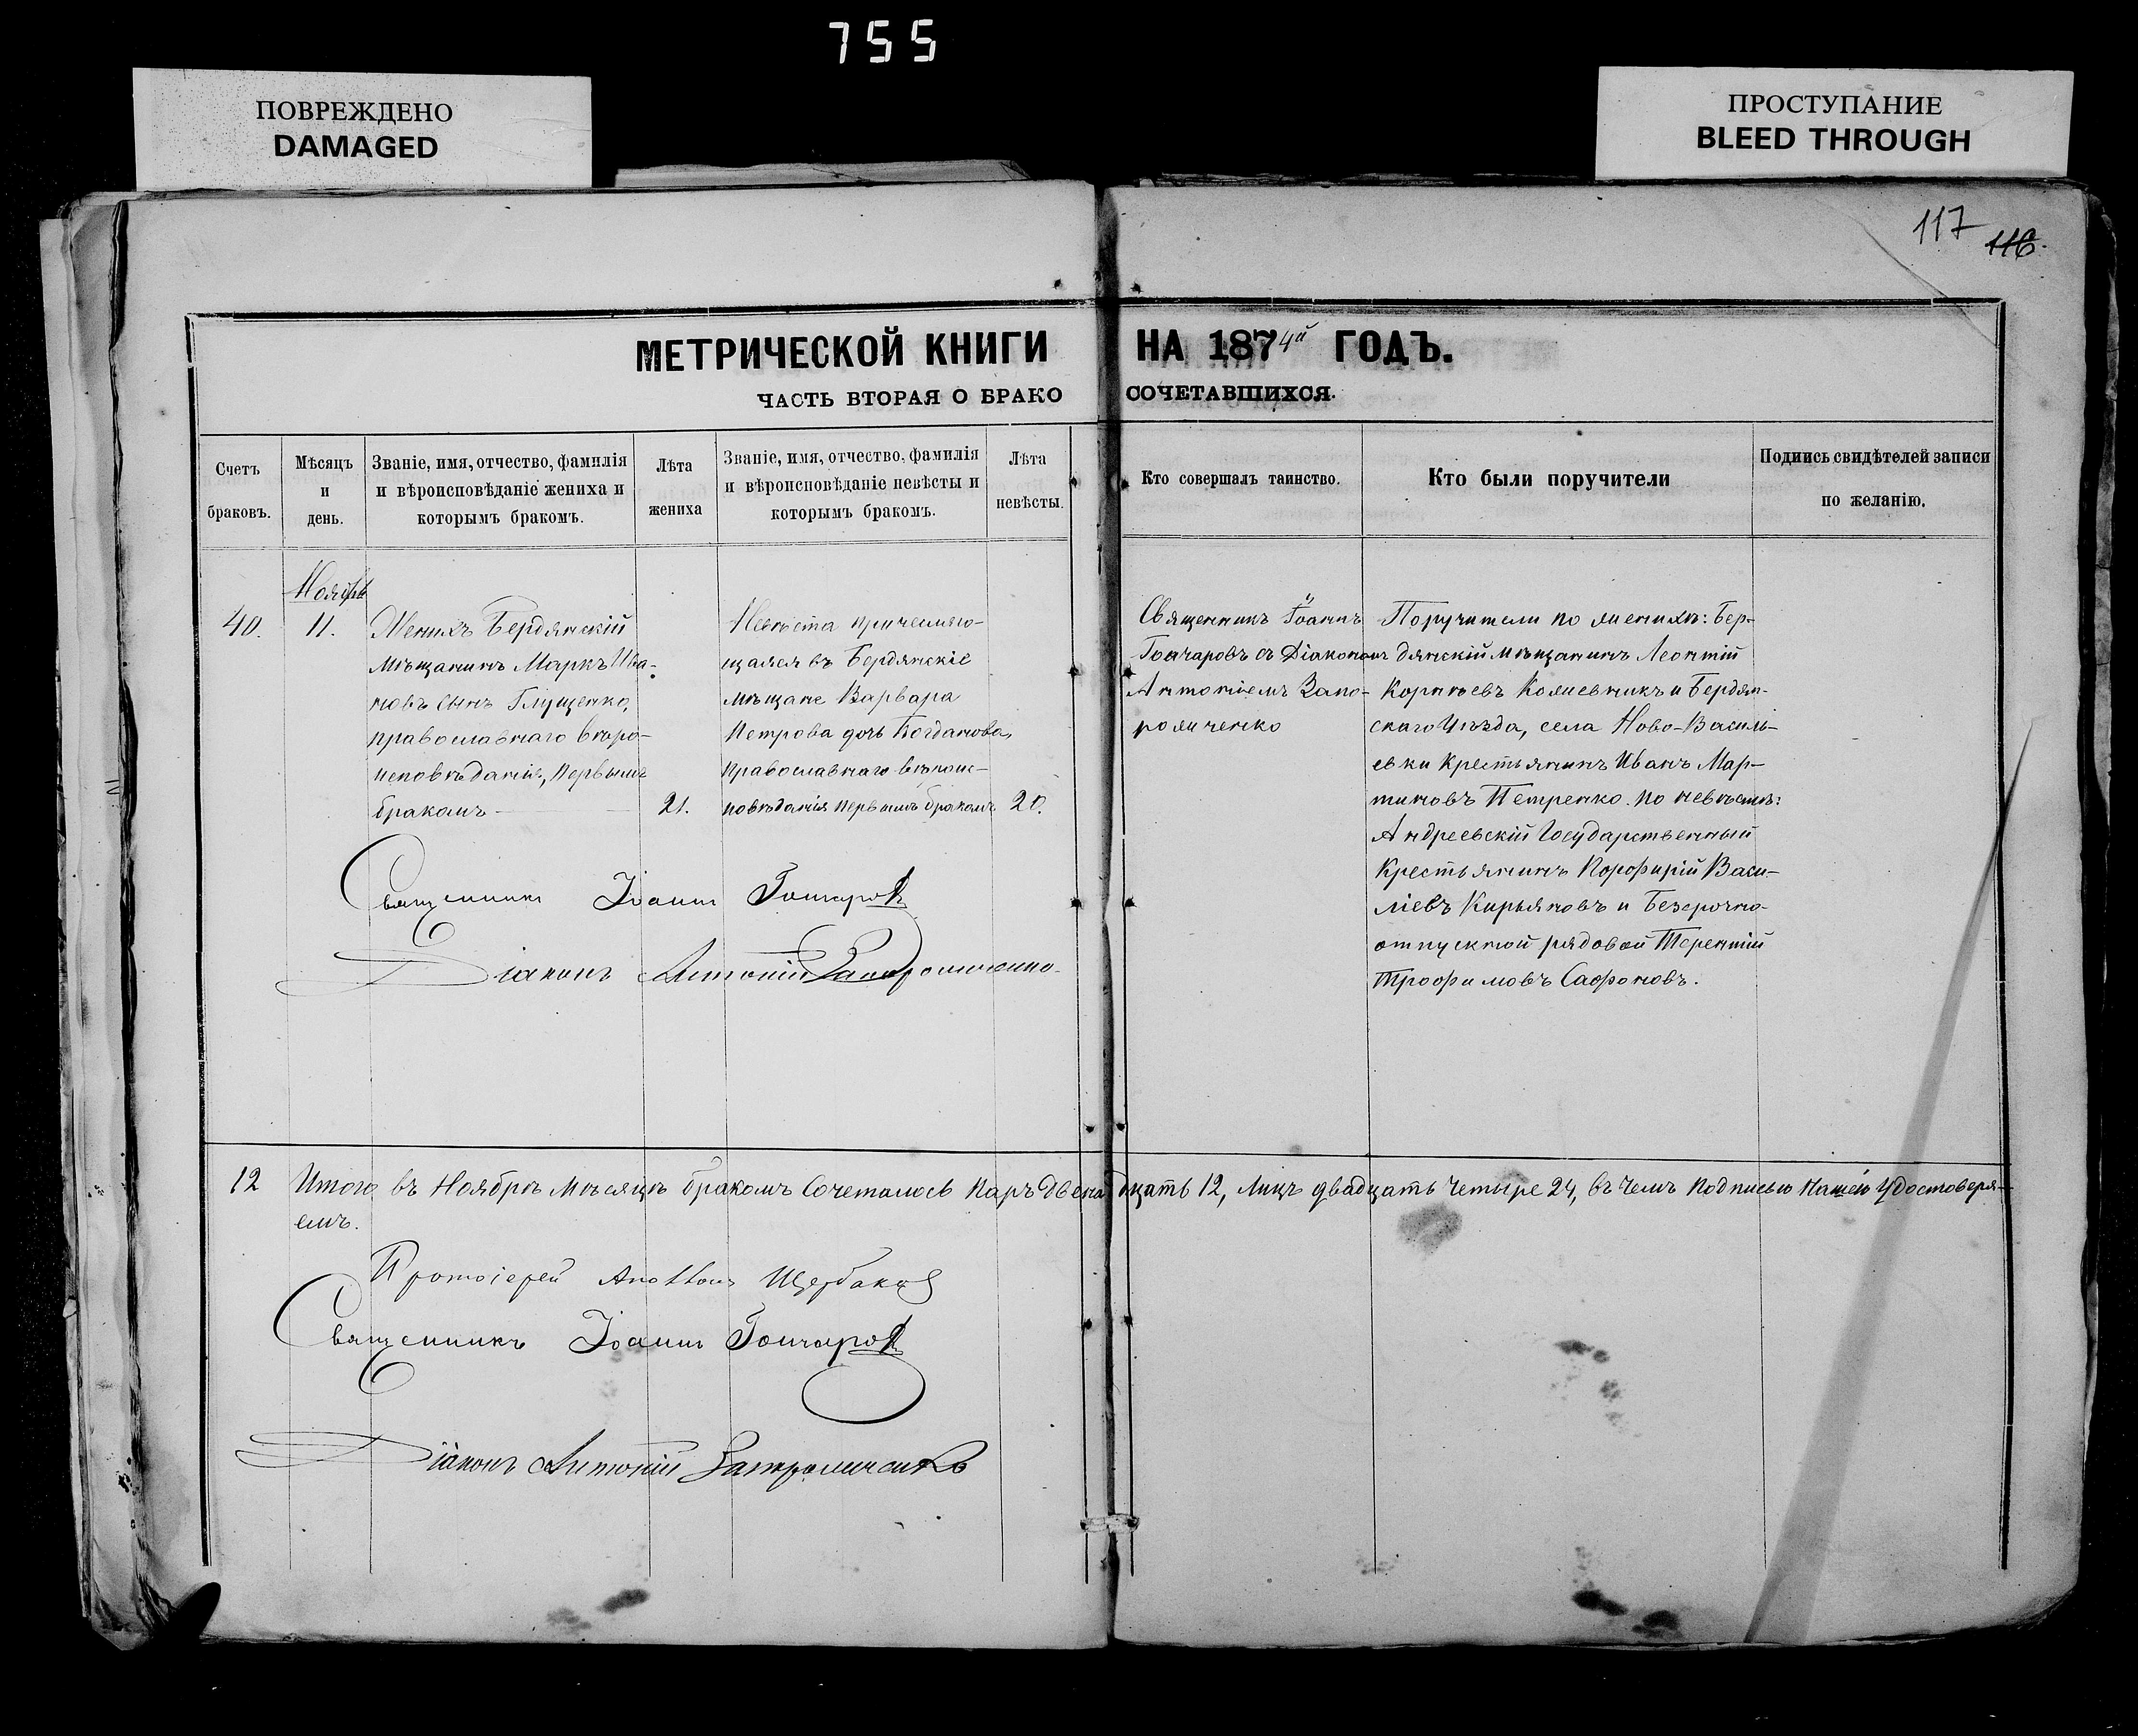 755
ПОВРЕЖДЕНО
DAMAGED
ПРОСТУПАНИЕ
BLEED THROUGH
117
116.
МЕТРИЧЕСКОЙ КНИГИ НА 1874й ГОДЪ.
ЧАСТЬ ВТОРАЯ О БРАКОСОЧЕТАВШИХСЯ.
Счетъ
браковъ.
Мѣсяцъ
и
день.
Званіе, имя, отчество, фамилія
и вѣроисповѣданіе жениха и
которымъ бракомъ.
Лѣта
жениха
Званіе, имя, отчество, фамилія
и вѣроисповѣданіе невѣсты и
которымъ бракомъ.
Лѣта
невѣсты.
Кто совершалъ таинство.
Кто были поручители
Подпись свидѣтелей записи
по желанію.
40.
Ноября
11.
Женихъ Бердянскій
мѣщанинъ Маркъ Ива-
новъ сынъ Глущенко,
православнаго вѣро-
исповѣданія, первымъ
бракомъ
21.
Невѣста причисляю-
щаяся въ Бердянскіе
мѣщане Варвара
Петрова дочь Богданова,
православнаго вѣроис-
повѣданія первымъ бракомъ
20.
Священникъ Іоаннъ
Гончаровъ съ Діакономъ
Антоніемъ Запо-
рожченко
Поручители по женихѣ: Бер-
дянскій мѣщанинъ Леонтій
Корнѣевъ Кожевникъ и Бердян-
скаго Уѣзда, села Ново-Василь-
евки крестьянинъ Иванъ Мар-
тиновъ Петренко. по невѣстѣ:
Андреевскій Государственный
Крестьянинъ Порфирій Васи-
ліевъ Кирьяновъ и Безсрочно-
отпускной рядовой Терентій
Трофимовъ Сафоновъ.
Священникъ Іоаннъ Гончаровъ
Діаконъ Антоній Запорожченко.
12
Итого въ Ноябрѣ мѣсяцѣ бракомъ сочеталось паръ двенадцать 12, лицъ двадцать четыре 24, въ чемъ подписью нашею удостоверя-
емъ.
Протоіерей Щербаковъ
Священникъ Іоаннъ Гончаровъ
Діаконъ Антоній Запорожченко